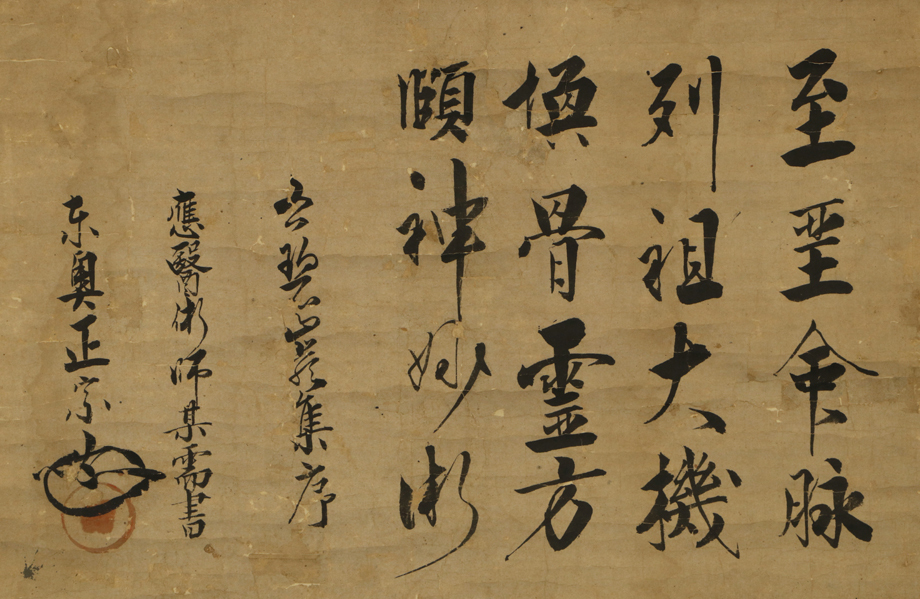 至聖命脉
列祖大機
換骨靈方
頤神妙術
右碧巖集序
應醫術師某需書
东奥正宗